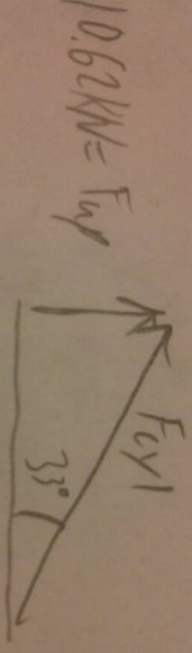 10.62KN = Fup
Fcyl
33°